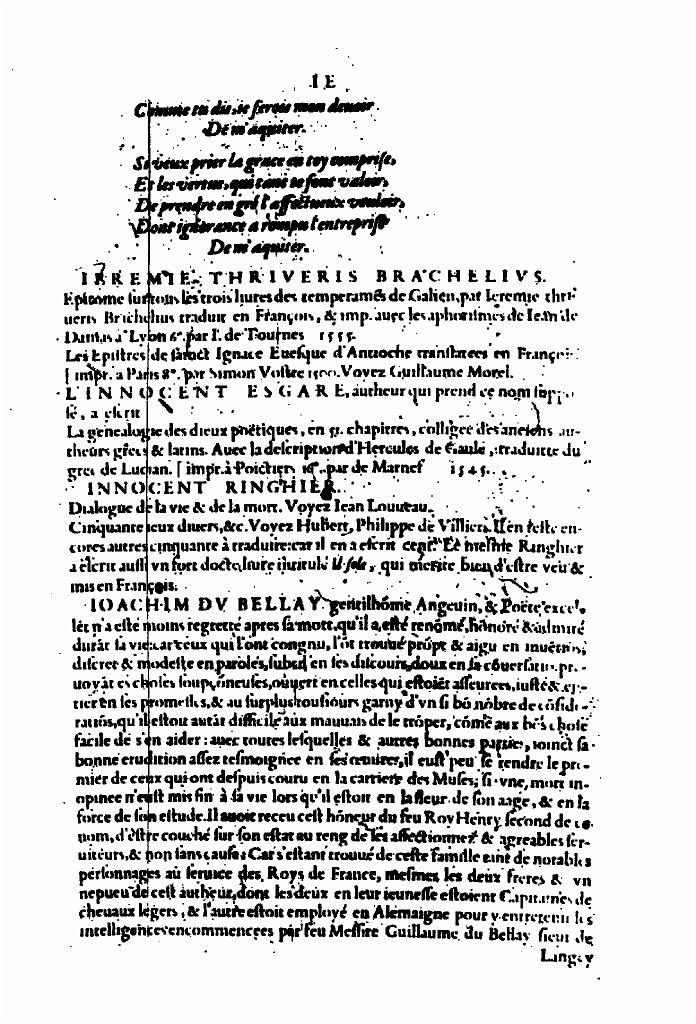 IE
Comme tu dis, ie ferois mon deuoir
De m'aquiter.
Si veux prier la grace en toy comprise,
Et les vertus, qui tant te font valoir,
De prendre en gré l'affectueux vouloir,
Dont ignorance a rompu l'entreprise
De m'aquiter.
IEREMIE THRIVERIS BRACHELIVS.
Epitome sur tous les trois liures des temperamēs de Galien, par Ieremie thri-
ueris Brachelius traduit en François, & imp. auec les aphorismes de Iean de
Dantas a Lyon 6°. par I. de Tournes 1555.
Les Epistres de sainct Ignace Euesque d'Antioche translatees en Françoi-
[impr. a Paris 8°. par Simon Vostre 1500. Voyez Guillaume Morel.
L'INNOCENT ESGARE, autheur qui prend ce nom suppo
sé, a escrit
La genealogie des dieux poëtiques, en 51. chapitres, colligee des anciens au-
theurs grecs & latins. Auec la description d'Hercules de Gaule, traduitte du
grec de Lucian. [impr. à Poictiers 16°. par de Marnef 1545.
INNOCENT RINGHIER.
Dialogue de la vie & de la mort. Voyez Iean Louueau.
Cinquante ieux diuers, &c. Voyez Hubert, Philippe de Villiers. Il en reste en-
cores autres cinquante à traduire: car il en a escrit cent. Et mesme Ringhier
a escrit aussi vn fort docte liure intitulé il sole, qui merite bien d'estre veu &
mis en François.
IOACHIM DV BELLAY gentilhōme Angeuin, & Poëte excel-
lēt n'a esté moins regretté apres sa mort, qu'il a esté renōmé, honoré & admiré
durāt sa vie: car ceux qui l'ont congnu, l'ōt trouué prōpt & aigu en inuētiōs,
discret & modeste en paroles, subtil en ses discours, doux en sa cōuersatiō, pr-
uoyāt es choses soupçōneuses, ouuert en celles qui estoiēt asseurees, iuste & en-
tier en ses promesses, & au surplus tousiours garny d'vn si bō nōbre de cōsidi-
ratiōs, qu'il estoit autāt difficile aux mauuais de le trōper, cōme aux bōs chose
facile de s'en aider: auec toutes lesquelles & autres bonnes parties, ioinct sa
bonne erudition assez tesmoignee en ses œuures, il eust peu se rendre le pre-
mier de ceux qui ont despuis couru en la carriere des Muses, si vne mort in-
opinee n'eust mis fin à sa vie lors qu'il estoit en la fleur de son aage, & en la
force de son estude. Il auoit receu cest hōneur du feu Roy Henry second de ce
nom, d'estre couché sur son estat au reng de ses affectionnez & agreables ser-
uiteurs, & non sans cause: Car s'estant trouué de ceste famille tant de notables
personnages au seruice des Roys de France, mesmes les deux freres & vn
nepueu de cest autheur, dont les deux en leur ieunesse estoient Capitaines de
cheuaux legers, & l'autre estoit employé en Alemaigne pour y entretenir les
intelligences encommencees par feu Messire Guillaume du Bellay sieur de
Langey